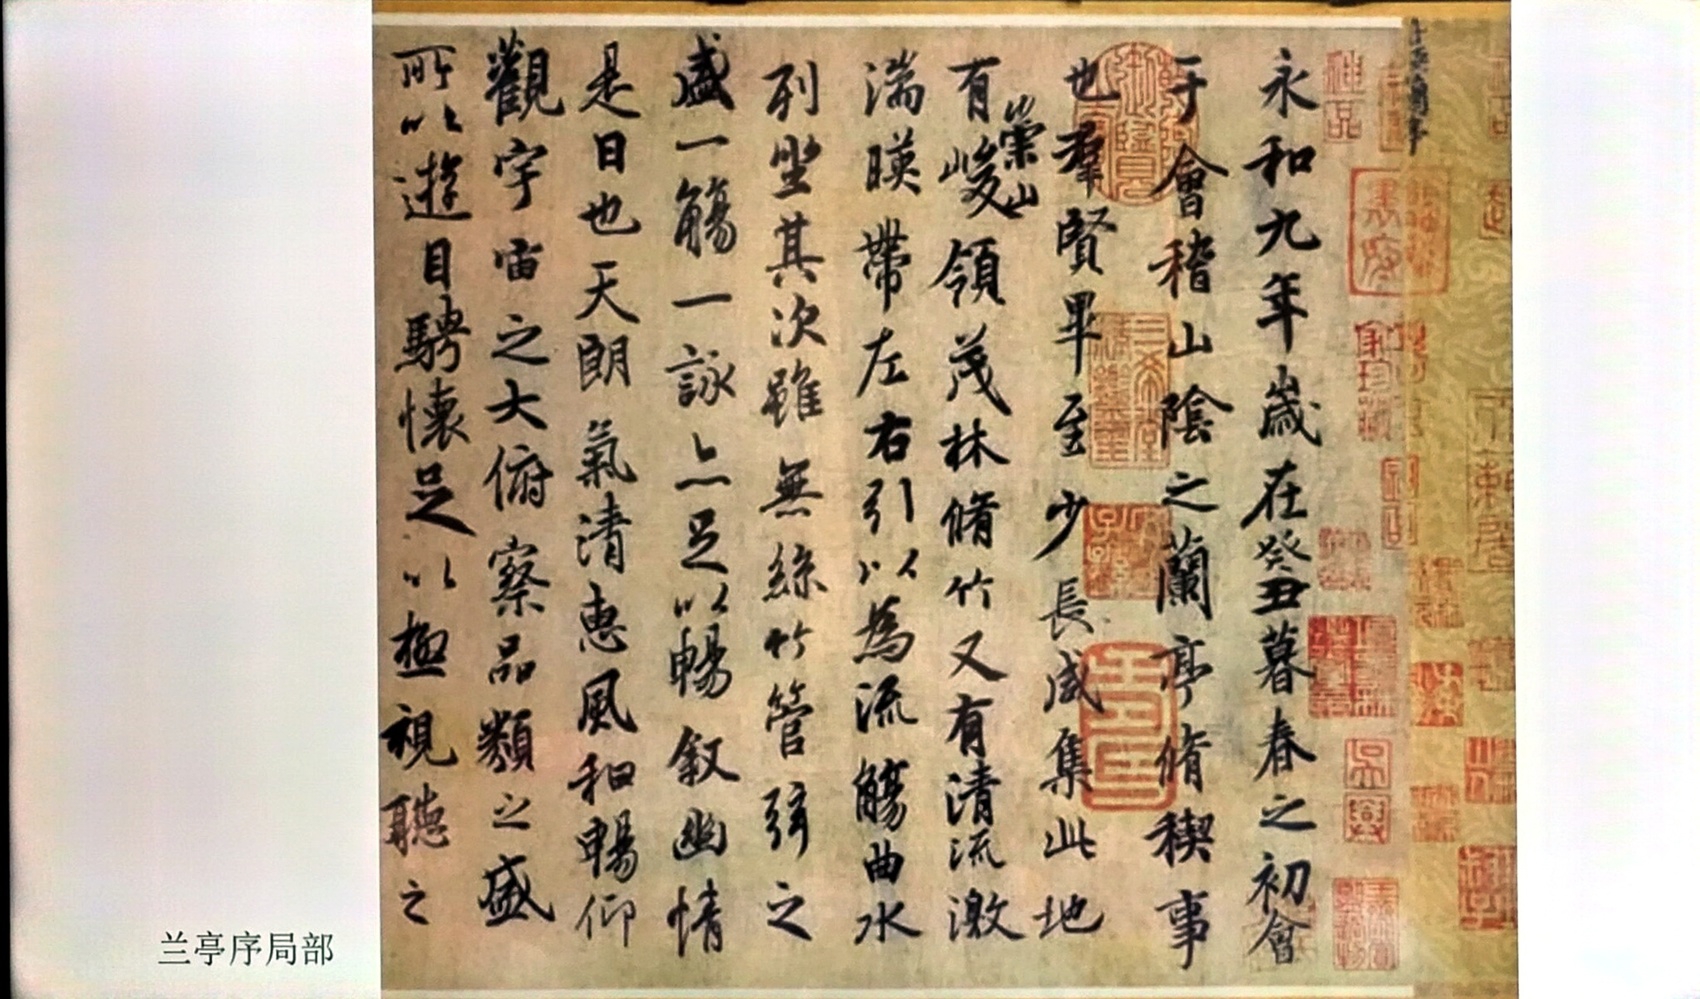 永和九年歲在癸丑暮春之初會
于會稽山陰之蘭亭脩稧事
也羣賢畢至少長咸集此地
有崇山峻領茂林脩竹又有清流激
湍暎帶左右引以為流觴曲水
列坐其次雖無絲竹管弦之
盛一觴一詠亦足以暢叙幽情
是日也天朗氣清恵風和暢仰
觀宇宙之大俯察品類之盛
所以遊目騁懷足以極視聽之
兰亭序局部